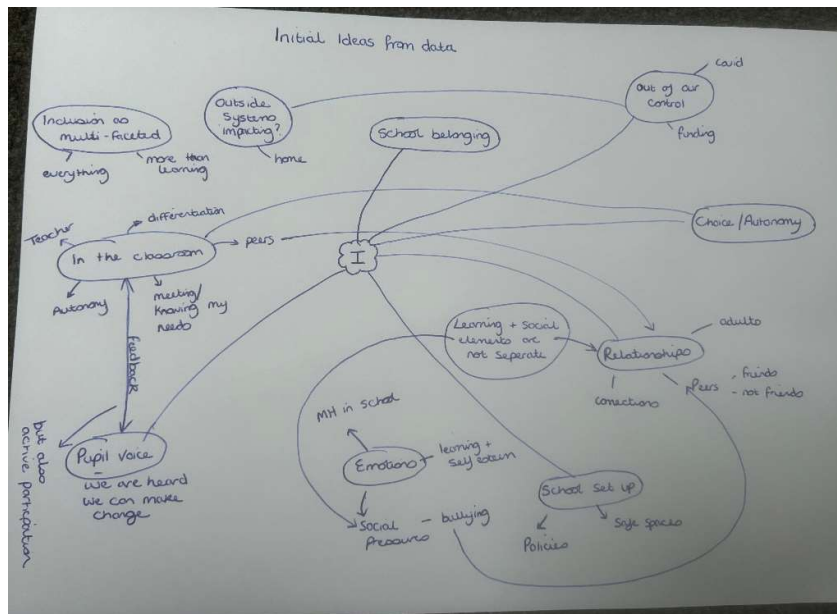 Initial Ideas from data
Inclusion as
multi-faceted
everything
more than
learning
Outside
Systems
impacting?
home
School belonging
covid
Out of our
control
funding
Choice/Autonomy
differentiation
Teacher
In the classroom
peers
Autonomy
meeting/
knowing my
needs
I
feedback
Learning + Social
elements are
not seperate
Relationships
adults
Peers
- friends
- not friends
conections
but also
active participation
Pupil voice
we are heard
we can make
change
MH in school
Emotions
learning +
self esteem
Social
Pressures
- bullying
School set up
Policies
Safe spaces